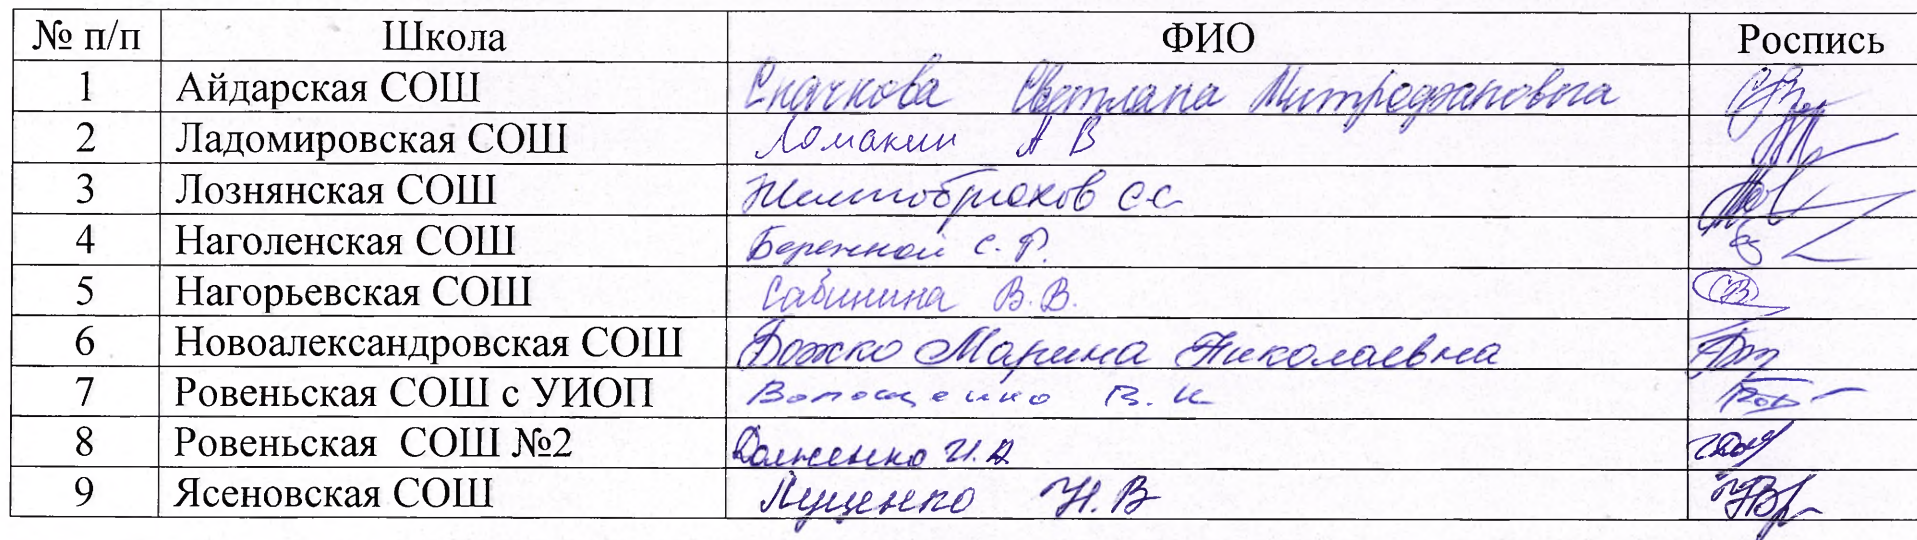 № п/п Школа ФИО Роспись
1 Айдарская СОШ Сначкова Светлана Митрофановна
2 Ладомировская СОШ Ломакин А В
3 Лознянская СОШ Желтобрюхов С С
4 Наголенская СОШ Бережной С. Р.
5 Нагорьевская СОШ Сабинина В. В.
6 Новоалександровская СОШ Божко Марина Николаевна
7 Ровеньская СОШ с УИОП Волощенко В. И
8 Ровеньская СОШ №2 Долженко И. А
9 Ясеновская СОШ Лущенко Н. В